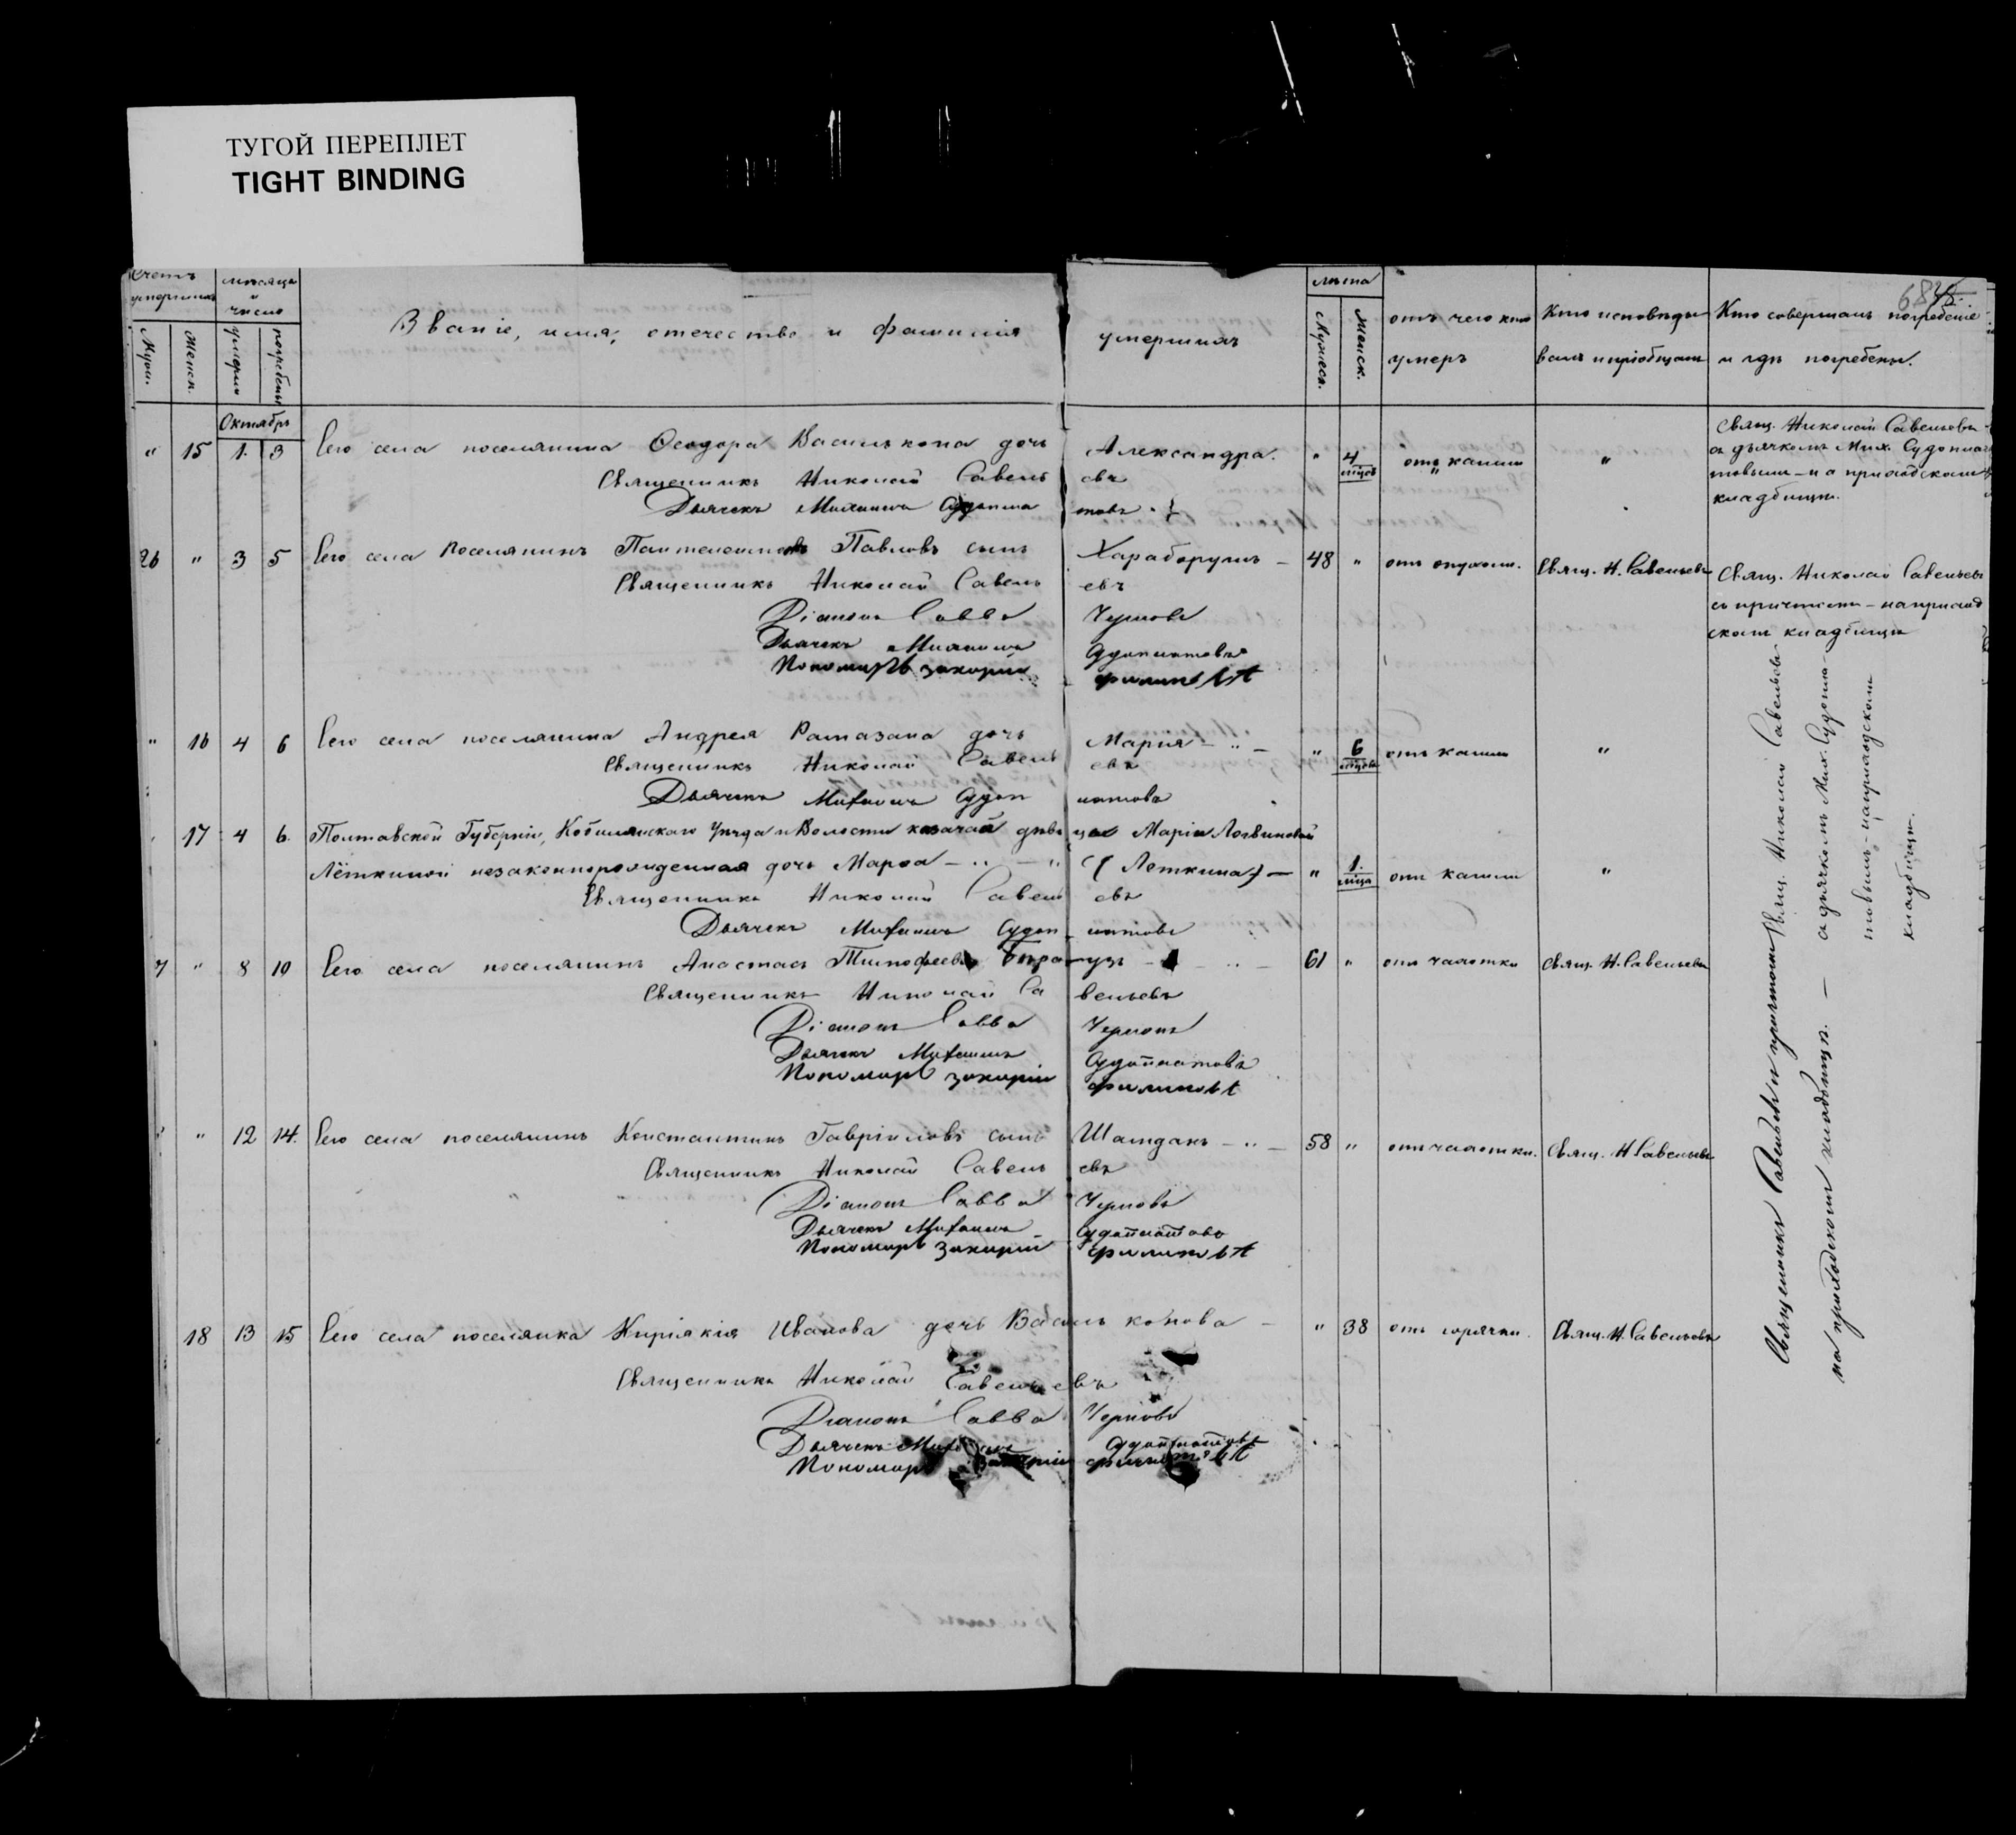 ТУГОЙ ПЕРЕПЛЕТ
TIGHT BINDING
Счетъ умершихъ
мѣсяцъ и число
Званіе, имя, отечество и фамилія умершихъ
лѣта
отъ чего кто умеръ
Кто исповѣды валъ и пріобщалъ
Кто совершалъ погребеніе и гдѣ погребены.
68
Муж.
Женск.
умерли
погребены
Мужеск.
Женск.
Октябрь
" 15 1. 3 Сего села поселянина Ѳеодора Василькона дочь Александра. " 4 мцовъ отъ кашли "
Священникъ Николай Савельевъ
Дьячекъ Михаилъ
Свящ. Николай Савельевъ
съ дьячкомъ Мих.
на приходскомъ
кладбищѣ.
26 " 3 5 Сего села поселянинъ Пантелеимонъ Павловъ сынъ Хараборушъ – 48 " отъ опухоли. Свящ. Н. Савельевъ
Священникъ Николай Савельевъ
Діаконъ Савва Черновъ
Дьячекъ Михаилъ
Пономарь Захарій
Свящ. Николай Савельевъ
съ причтомъ – на приход
скомъ кладбищѣ
" 16 4 6 Сего села поселянина Андрея Рамазана дочь Марія – " – " 6 мцовъ отъ кашли "
Священникъ Николай Савельевъ
Дьячекъ Михаилъ
17 4 6. Полтавской Губерніи, Кобиляцкаго Уѣзда и Волости козачки дѣвицы Маріи Логвиновой
Лёткиной незаконнорожденная дочь Марѳа – " – " (Леткина) – " 1. мца отъ кашли "
Священникъ Николай Савельевъ
Дьячекъ Михаилъ
Свящ. Николай Савельевъ
съ дьячкомъ Мих.
на приходскомъ
кладбищѣ.
7 " 8 10 Сего села поселянинъ Анастасъ Тимофеевъ 61 " отъ чахотки Свящ. Н. Савельевъ
Священникъ Николай Савельевъ
Діаконъ Савва Черновъ
Дьячекъ Михаилъ
Пономарь Захарій
" 12 14. Сего села поселянинъ Константинъ Гавріиловъ сынъ Шамданъ – " – 58 " отъ чахотки. Свящ. Н. Савельевъ
Священникъ Николай Савельевъ
Діаконъ Савва Черновъ
Дьячекъ Михаилъ
Пономарь Захарій
18 13 15 Сего села поселянка Киріакія Иванова дочь Василь конова – " 38 отъ горячки. Свящ. Н. Савельевъ
Священникъ Николай Савельевъ
Діаконъ Савва Черновъ
Дьячекъ
Пономарь
Священникъ Савельевъ и причтомъ
на приходскомъ кладбищѣ. –